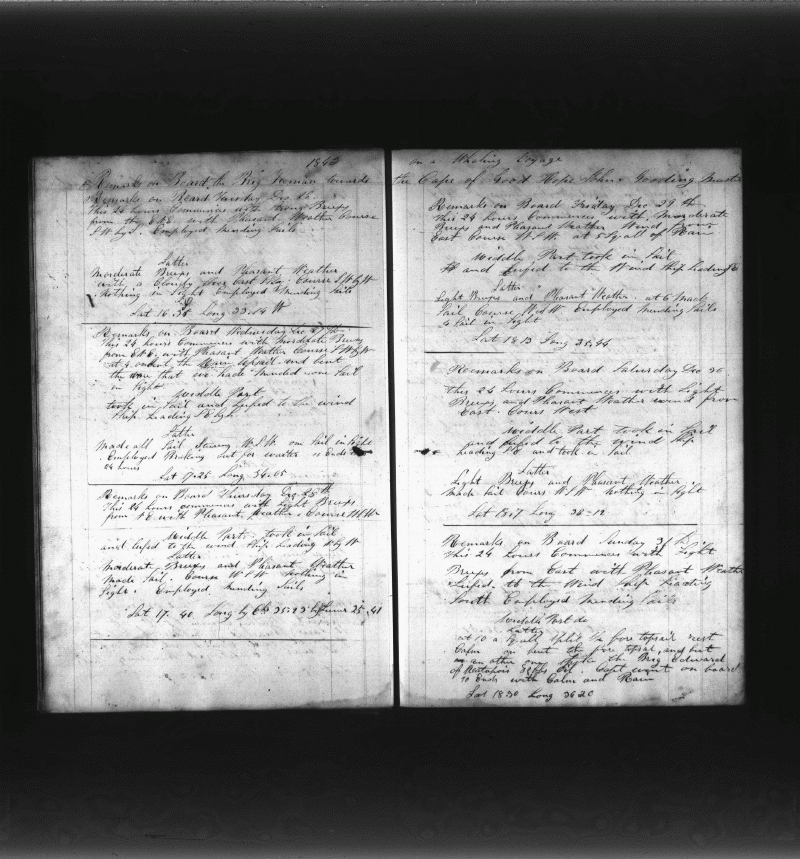 1843
Remarks on Board the Brig towards
Remarks on Board Tuesday Dec 26
This 24 hours Commences with Strong Breeps
from the ENE with Pleasant Weather Course
SW by W. Employed Mending Sails
Latter
Moderate Breeps and Pleasant Weather
with a Clowdy Over Cast Sky. Course SW by W
Nothing in Sight Employed Mending Sails
Lat 16.35 Long 33.14 W
Remarks on Board Wednesday Dec 27th
This 24 hours Commences with Moderate Breeps
from ENE with Pleasant Weather Course SW by W
at 4 unbent the Main topsail and bent
the one that we had Mended one Sail
in Sight
Middle Part
took in Sail and luffed to the wind
Ship Heading SE by S
Latter
Made all Sail Stearing W.S.W one Sail in Sight
Employed Breaking out for water so Ends
24 hours
Lat 17.25 Long 34.05
Remarks on Board Thursday Dec 28th
This 24 hours commences with Light Breeps
from NE with Pleasant Weather Course
Middle Part took in Sail
and lufed to the wind Ship Heading by W
Latter
moderate Breeps and Pleasant Weather
Made Sail. Course W S W Nothing in
Sight. Employed Mending Sails
Lat 17.40 Long by 35.23 by Lunar 25.41
on a Whaling Voyage
the Cape of Good Hope John Gooding Master
Remarks on Board Friday Dec 29th
This 24 hours Commences with Moderate
Breeps and Pleasant Weather Wind from
East Course W.S.W. at 5 Squall of Rain
Middle Part took in Sail
and lufed to the Wind Ship Heading
Latter
Light Breeps and Pleasant Weather. at 6 Made
Sail Course W Employed Mending Sails
a Sail in Sight
Lat 18.13 Long 35.44
Remarks on Board Saturday Dec 30
this 24 hours Commences with Light
Breeps and Pleasant Weather wind from
East. Cours West
Middle Part took in Sail
and lufed to the wind Ship
heading and took in Sail
Latter
Light Breeps and Pleasant Weather
Made Sail Cours W S W Nothing in Sight
Lat 18.7 Long 36-12
Remarks on Board Sunday 31
This 24 hours Commences with Light
Breeps from East with Pleasant Weather
Luifed to the Wind Ship Heading
South Employed Mending Sails
Middle Part do
Latter
at 10 a Squall Split the fore topsail rest
Calm on bent the fore topsail and bent
an other one the Brig Edward
of Capt went on board
so Ends with Calm and Rain
Lat 18.30 Long 36.20